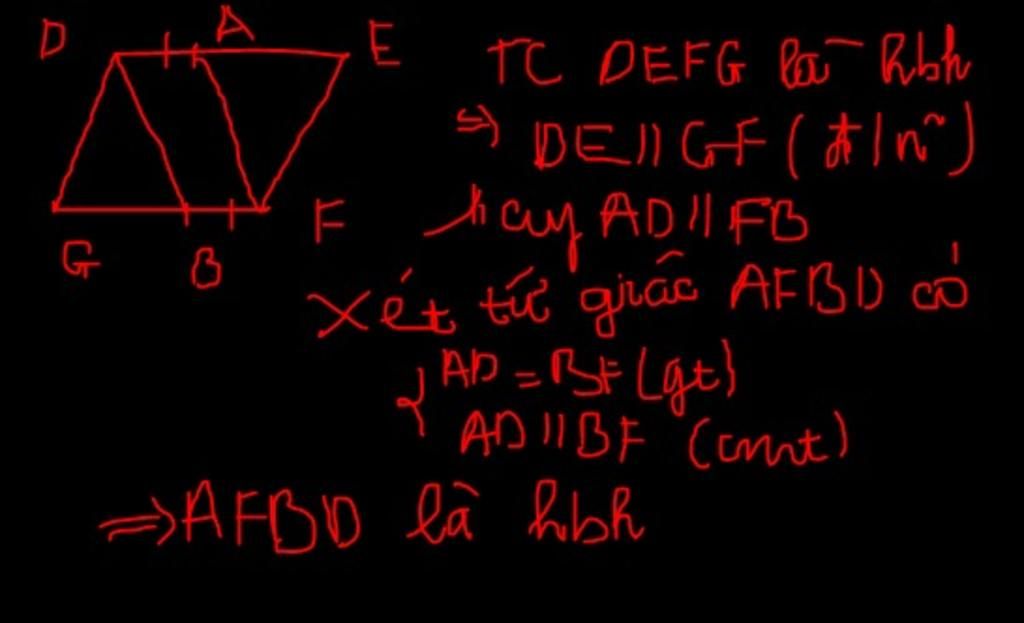 D A E
G B F
TC DEFG là hbh
=> DE // GF (đ/n~)
hay AD // FB
Xét tứ giác AFBD có
{ AD = BF (gt)
AD // BF (cmt)
=> AFBD là hbh